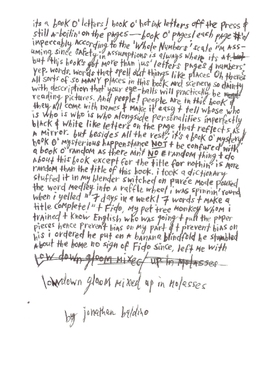 its a book o' letters! book o' hot ink letters off the press &
still a-boilin' on the pages — book o' pages! each page #'d
impeccably according to the 'Whole Numbers' scale i'm ass-
uming since safety in assumptions is always where its at
but this book's got more than just letters pages & numbers;
yep. words. words that spell out things like places. Oh theres
all sorts of so many places in this book and scenery so daintly
with description that your eye-balls will practically be
reading pictures. And people! people are in this book &
they all come with names & make it easy t tell whose who
is who is who is who alongside personalities imperfectly
black & white like letters on the page that reflects as
a mirror. but besides all the rest, it's a book o' mystery
book o' mysterious happenstance NOT t be confused with
a book o' random as there aint NO # random thing t do
about this book except for the title for nothin' is more
random than the title of this book. i took a dictionary
stuffed it in my blender switched on purée mode poured
the word medley into a raffle wheel i was spinnin' round
when i yelled "7 days in a week! 7 words t make a
title complete!" t Fido, my pet tree monkey whom i
trained t know English who was going t pull the paper
pieces hence prevent bias on my part & t prevent bias on
his i ordered he put on a banana blindfold he stumbled
about the home no sign of Fido since, left me with
Low down gloom mixed up in molasses
lowdown gloom mixed up in molasses
by jonathan baldino